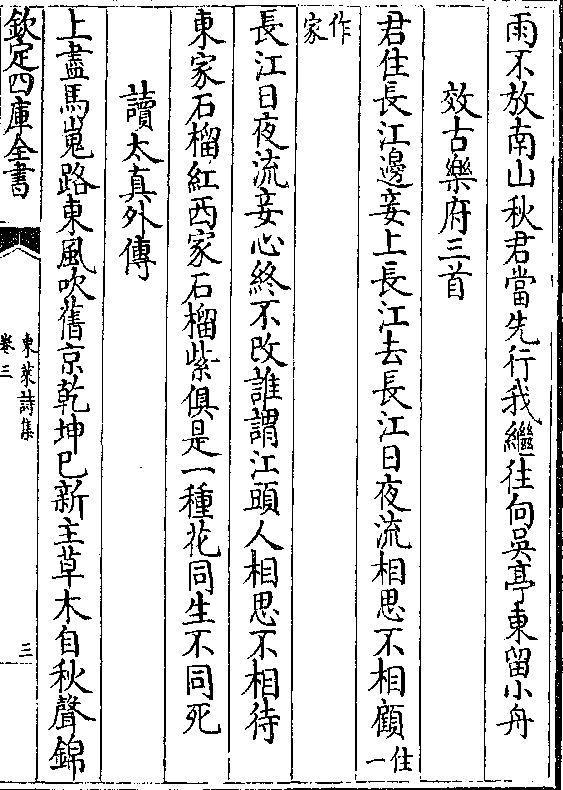 雨不放南山秋君當先行我繼往向吳亭東留小舟
效古樂府三首
君住長江邊妾上長江去長江日夜流相思不相顧住一
作家
長江日夜流妾心終不改誰謂江頭人相思不相待
東家石榴紅西家石榴紫俱是一種花同生不同死
讀太真外傳
上盡馬嵬路東風吹舊京乾坤已新主草木自秋聲錦
欽定四庫全書
東萊詩集
卷三
三